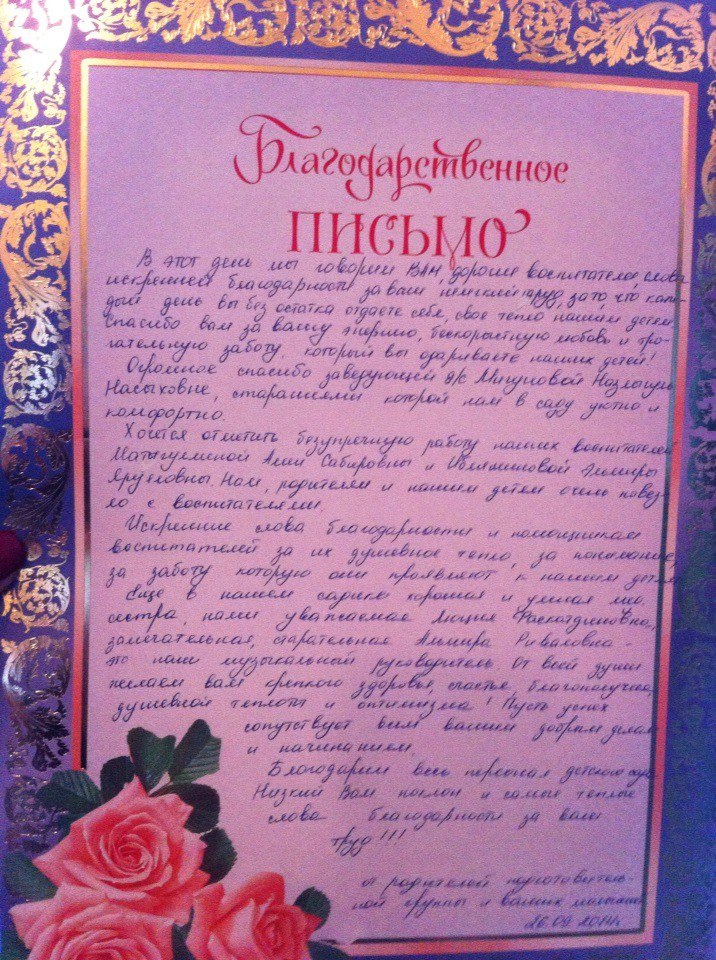 Благодарственное
ПИСЬМО
В этот день мы говорим ВАМ, дорогие воспитатели, слова
искренней благодарности за ваш нелегкий труд, за то, что каж-
дый день вы без остатка отдаете себя, свое тепло нашим детям
Спасибо вам за вашу энергию, бескорыстную любовь и тро-
гательную заботу, который вы одариваете наших детей!
Огромное спасибо заведующей д/с
Насыховне, стараниями которой нам в саду уютно и
комфортно.
Хочется отметить безупречную работу наших воспитателей
Алии Сабировны и Эльмиры
Нам, родителям и нашим детям очень повез-
ло с воспитателями.
Искренние слова благодарности и помощникам
воспитателей за их душевное тепло, за понимание,
за заботу которую они проявляют к нашим детям
Еще в нашем садике хорошая и умная мед.
сестра, наша уважаемая Люция
замечательная, старательная Альмира Риваловна -
это наш музыкальный руководитель От всей души
желаем вам крепкого здоровья, счастья, благополучия,
душевной теплоты и оптимизма! Пусть успех
сопутствует всем вашим добрым делам
и начинаниям.
Благодарим весь персонал детского сада
Низкий Вам поклон и самые теплые
слова благодарности за ваш
труд!!!
от родителей подготовитель-
ной группы и ваших малышей
26.09.2014г.